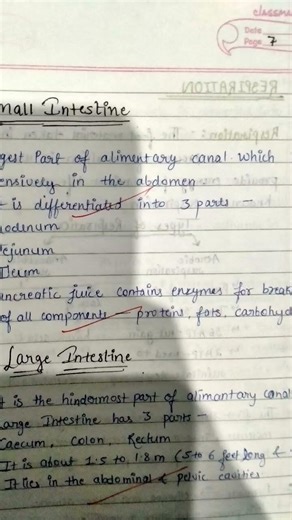 classmate
Date
Page 7
RESPIRATION
mall Intestine
gest Part of alimentary canal which
ensively in the abdomen
is differentiated into 3 parts -
odenum
ejunum
Ileum
ancreatic juice contains enzymes for break
of all components - proteins, fats, carbohyd
Large Intestine
It is the hindermost part of alimantary canal
Large Intestine has 3 parts -
Caecum, Colon, Rectum
It is about 1.5 to 1.8 m (5 to 6 feet long &
It lies in the abdominal & pelvic cavities